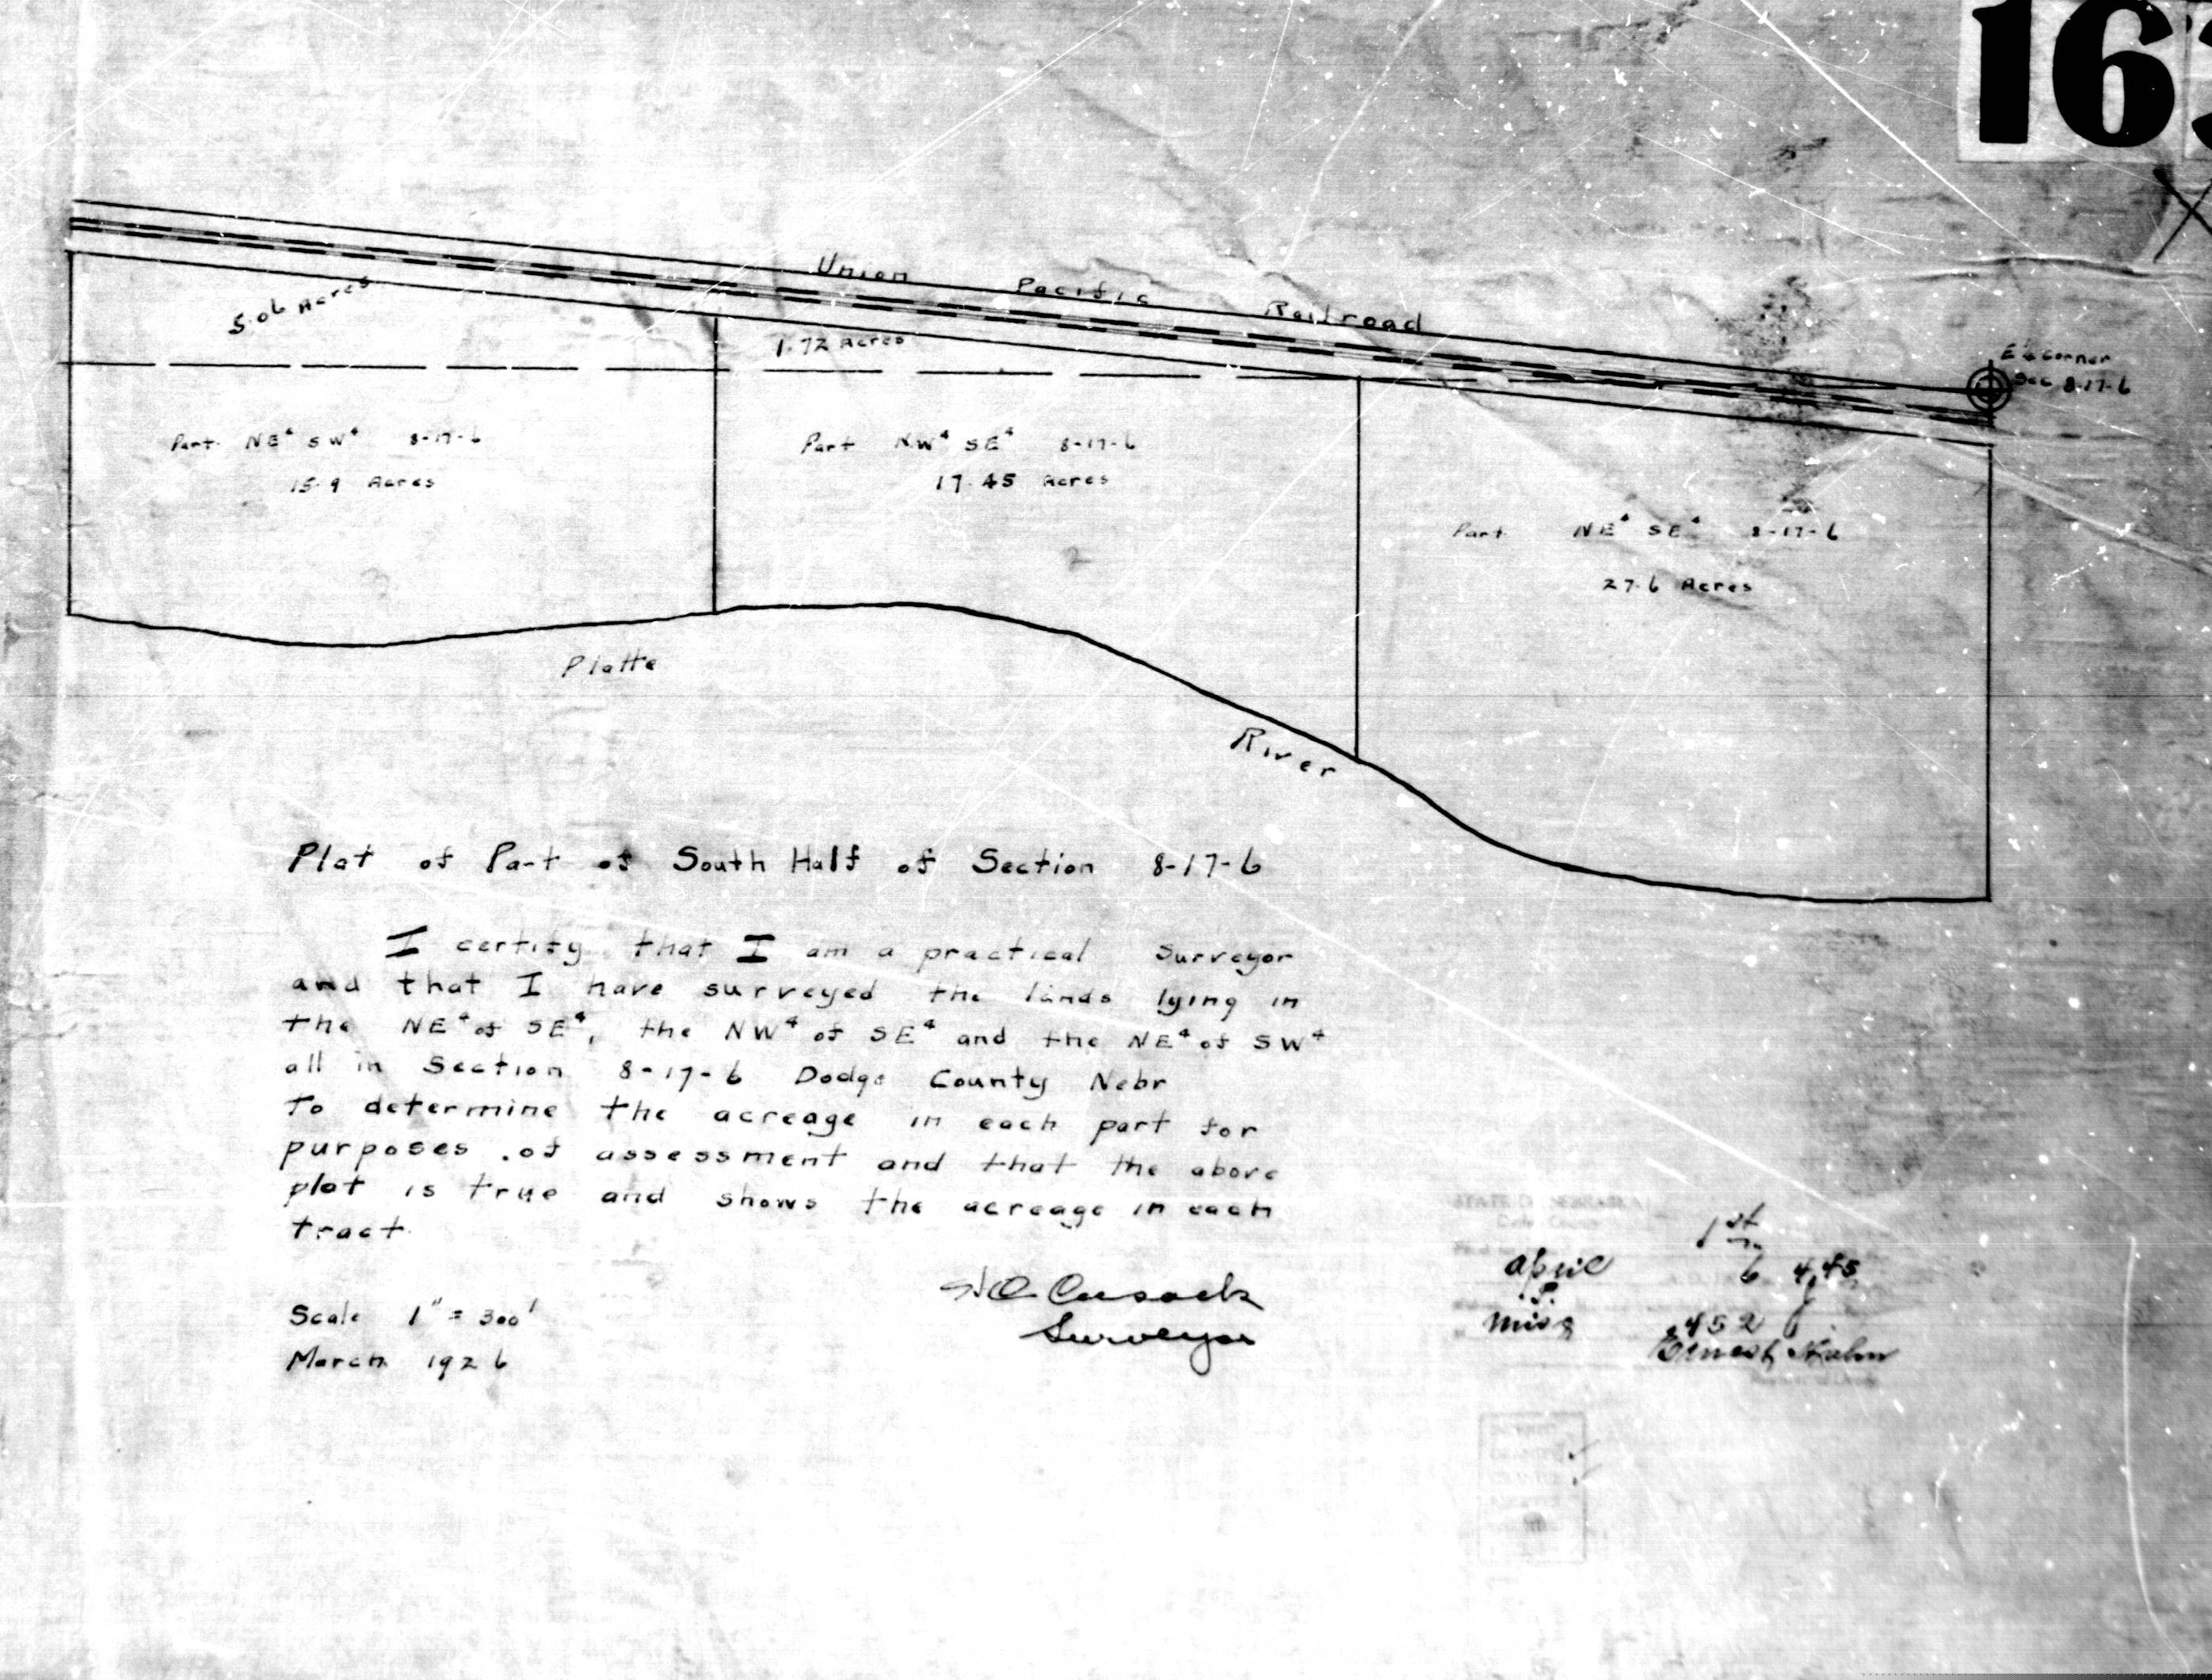 16
Union Pacific Railroad
5.06 Acres
1.72 Acres
E ¼ Corner
Sec 8-17-6
Part NE⁴ SW⁴ 8-17-6
15.9 Acres
Part NW⁴ SE⁴ 8-17-6
17.45 Acres
2
Part NE⁴ SE⁴ 8-17-6
27.6 Acres
Platte
River
Plat of Part of South Half of Section 8-17-6
I certify that I am a practical Surveyor
and that I have surveyed the lands lying in
the NE⁴ of SE⁴, the NW⁴ of SE⁴ and the NE⁴ of SW⁴
all in Section 8-17-6 Dodge County Nebr
To determine the acreage in each part for
purposes of assessment and that the above
plat is true and shows the acreage in each
tract.
Scale 1" = 300'
March 1926
Cusack
Surveyor
1st
April 6 4,45
P.
Misc 452
Ernest Hahn
Register of Deeds